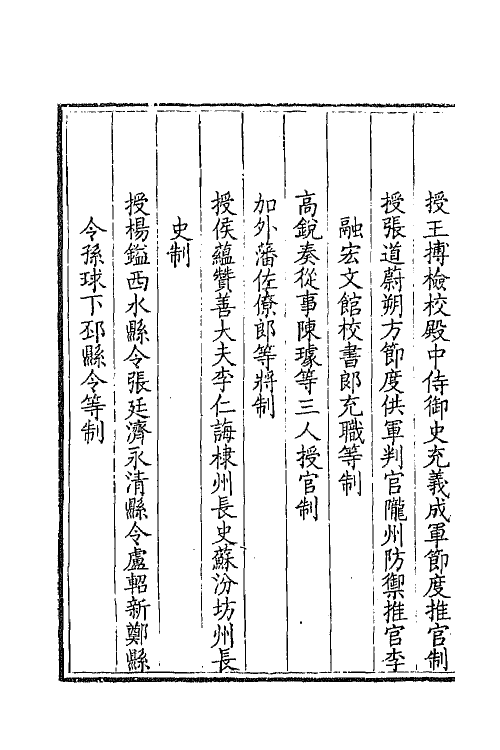 授王摶檢校殿中侍御史充義成軍節度推官制
授張道蔚朔方節度供軍判官隴州防禦推官李
融宏文館校書郎充職等制
高銳奏從事陳璩等三人授官制
加外藩佐僚郎等將制
授侯蘊贊善大夫李仁誨棣州長史蘇汾坊州長
史制
授楊鎰西水縣令張廷濟永清縣令盧軺新鄭縣
令孫球下邳縣令等制